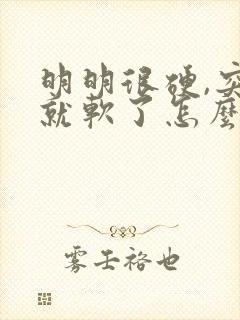 明明很硬,突
就軟了怎麼
雾王裕也